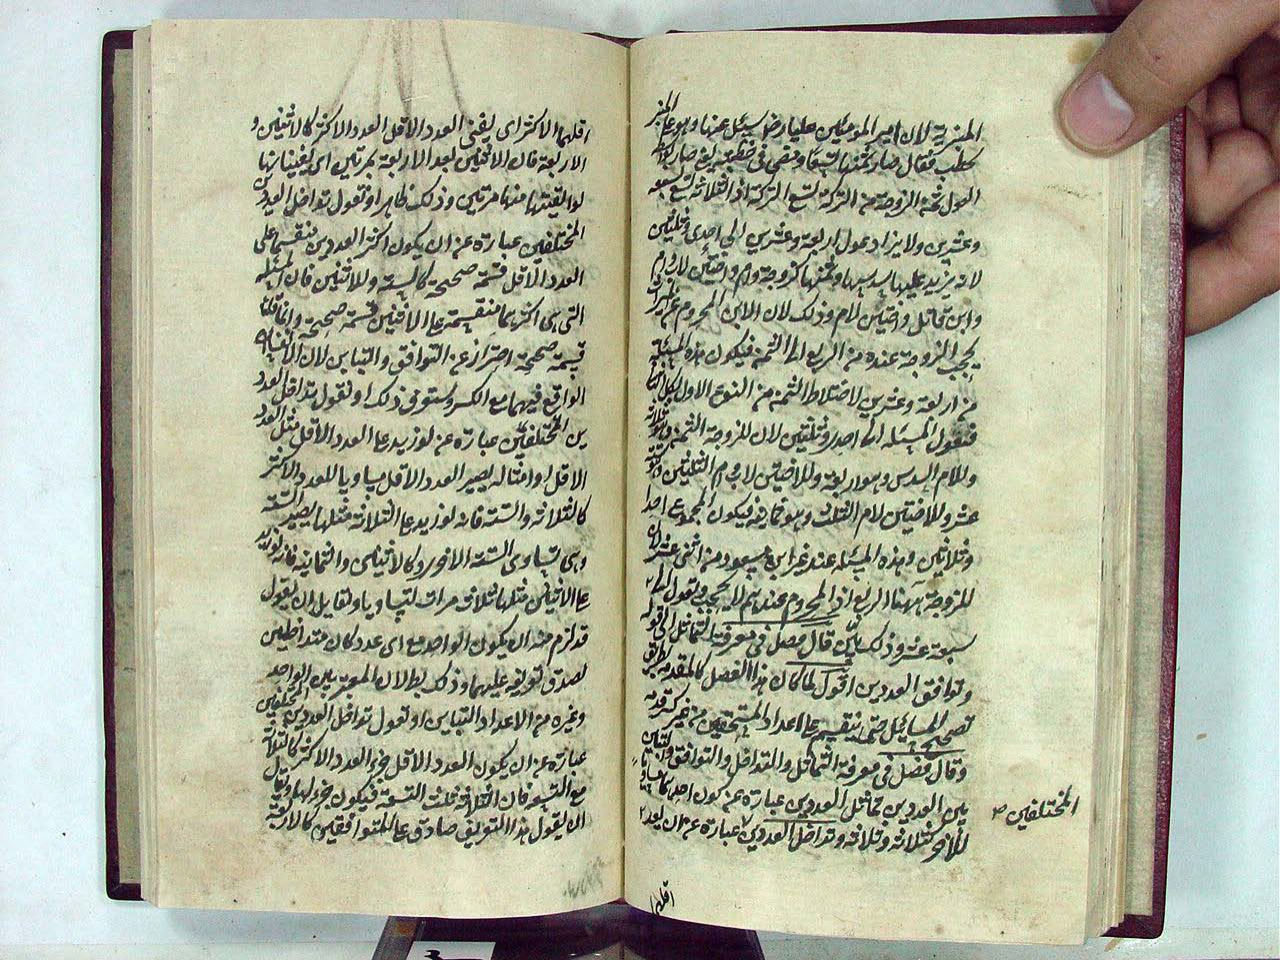 المنبرية لان امير المؤمنين عليا رض سئل عنها وهو على المنبر
يخطب فقال صار ثمنها تسعا ومضى في خطبته يعني صار بواسطة
العول ثمن الزوجة من التركة تسع التركة اذ الثلاثة تسع سبعة
وعشرين ولا يزاد عول اربعة وعشرين الى احدى وثلثين
لانه يزيد عليها سدسها وثمنها كزوجة وام واختين لاب وام
وابن قاتل واختين لام وذلك لان الابن المحروم عن الميراث
يحجب الزوجة عنده من الربع الى الثمن فيكون هذه المسئلة
من اربعة وعشرين لاختلاط الثمن من النوع الاول بكل الثاني
فتعول المسئلة الى احد وثلثين لان للزوجة الثمن وهو ثلاثة
وللام السدس وهو اربعة وللاختين لاب وام الثلثين وهو ستة
عشر وللاختين لام الثلث وهو ثمانية فيكون المجموع احدا
وثلاثين وهذه المسئلة عند غير ابن مسعود من اثنى عشر لان
للزوجة ههنا الربع اذ المحروم عندهم لا يحجب وتعول الى
سبعة عشر وذلك بين قال فصل في معرفة التماثل الى قوله
وتوافق العددين اقول لما كان هذا الفصل كالمقدمة لطريق
تصحيح المسائل حتى ينقسم على اعداد المستحقين من غير كسر قدمه
وقال فصل في معرفة التماثل والتداخل والتوافق والتباين
بين العددين تماثل العددين عبارة عن كون احدهما مساويا
للآخر كثلاثة وثلاثة وتداخل العددين عبارة عن ان يعد
المختلفين
اقلهما
اقلهما الاكثر اى يفنى العدد الاقل العدد الاكثر كالاثنين و
الاربعة فان الاثنين يعد الاربعة بمرتين اى يفنيانها
لو القيتهما منها مرتين وذلك ظاهر او نقول تداخل العددين
المختلفين عبارة عن ان يكون اكثر العددين منقسما على
العدد الاقل قسمة صحيحة كالستة والاثنين فان الستة
التى هى اكثرهما منقسمة على الاثنين قسمة صحيحة وانما قلنا
قسمة صحيحة احترازا عن التوافق والتباين لان الانقسام
الواقع فيهما مع الكسر وستعرف ذلك او نقول تداخل العدد
ين المختلفين عبارة عن لو زيد على العدد الاقل مثل العدد
الاقل او امثاله يصير العدد الاقل مساويا للعدد الاكثر
كالثلاثة والستة فانه لو زيد على الثلاثة مثلها يصير الستة
وهى تساوى الستة الاخرى وكالاثنين والثمانية فانه لو زاد
على الاثنين مثلها ثلاث مرات لتساويا ولقايل ان يقول
قد لزم منه ان يكون الواحد مع اى عدد كان متداخلين
لصدق تعريفه عليهما وذلك بط لان المعتبر بين الواحد
وغيره من الاعداد التباين او نقول تداخل العددين المختلفين
عبارة عن ان يكون العدد الاقل جزء العدد الاكثر كالثلاثة
مع التسعة فان الثلاثة ثلث التسعة فيكون جزء لها ولقايل
ان يقول هذا التعريف صادق على المتوافقين كالاربعة